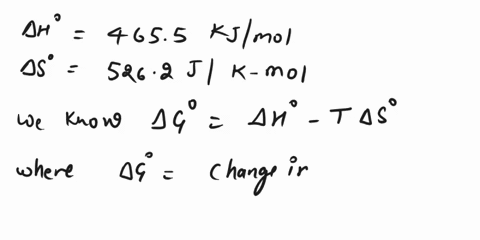 ΔH° = 465.5 KJ/mol
ΔS° = 526.2 J/K-mol
we know ΔG° = ΔH° - TΔS°
where ΔG° = Change in